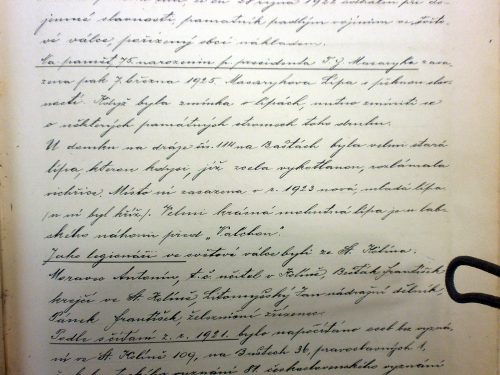 jemné slavnosti, památník padlým vojínům ve světo-
vé válce, pořízený obcí nákladem.
Na paměť 75. narozenin p. presidenta T. G. Masaryka zasa-
zena pak 7. března 1925 Masarykova lípa s pěknou slav-
ností. Když byla zmínka o lipách, nutno zmíniti se
o některých památných stromech toho druhu.
U domku na dráze čís. 114 na Baštách byla velmi stará
lípa, kterou kdysi, již zcela vykotlanou, rozlámala
vichřice. Místo ní zasazena v r. 1923 nová, mladá lípa
/u ní byl kříž./. Velmi krásná mohutná lípa je u lab-
ského náhonu před „Valchou".
Jako legionáři ve světové válce byli ze St. Kolína:
Moravec Antonín, t. č. učitel v Kolíně, Bašták František
krejčí ve St. Kolíně, Litomyský Jan nádražní dělník,
Pánek František, železniční zřízenec.
Podle sčítání z r. 1921. bylo napočítáno osob bu vyzná-
ní ve St. Kolíně 109, na Baštech 36, pravoslavných 1,
vyznání 81, československého vyznání